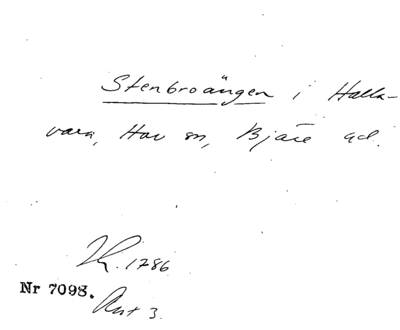 Stenbroängen i Halla-
vara, Hov sn, Bjäre hd.
Lh. 1786
Nr 7098.
Akt 3.